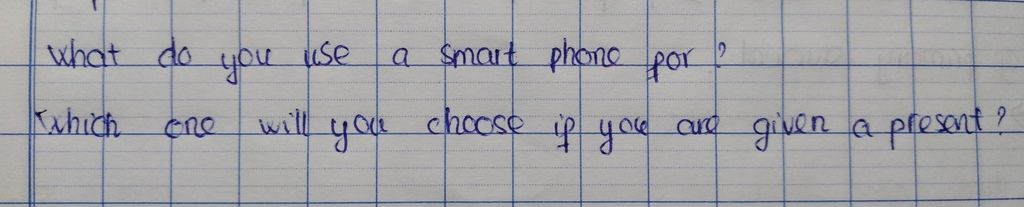 What do you use a smart phone for?
Which one will you choose if you are given a present?